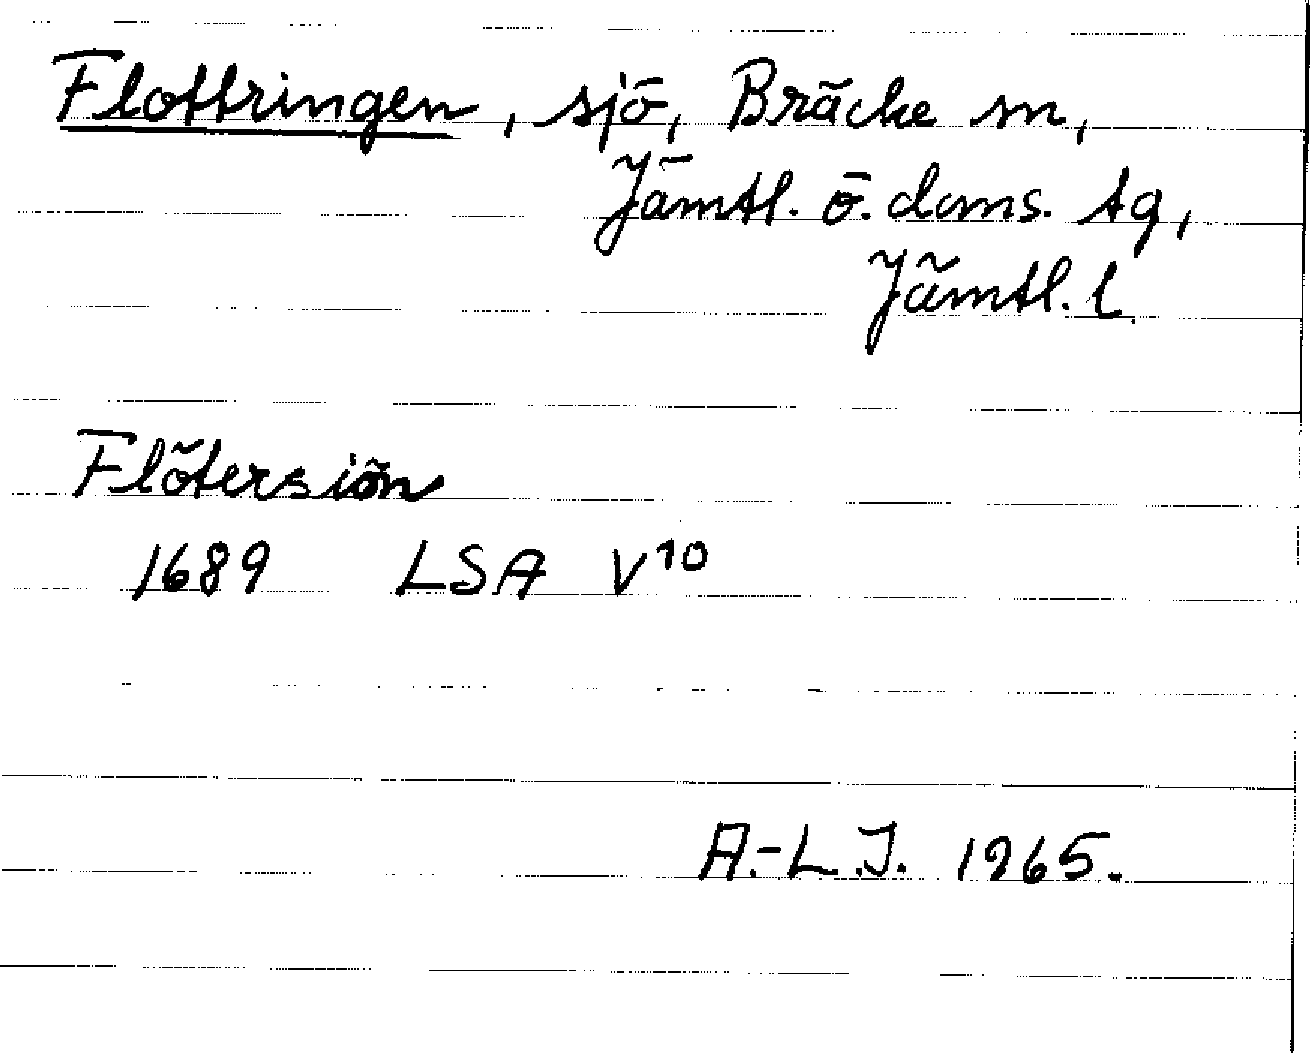 Flottringen, sjö, Bräcke sn,
Jämtl. ö. doms. tg,
Jämtl. l.
Flötersiön
1689 LSA V¹⁰
A.-L.J. 1965.